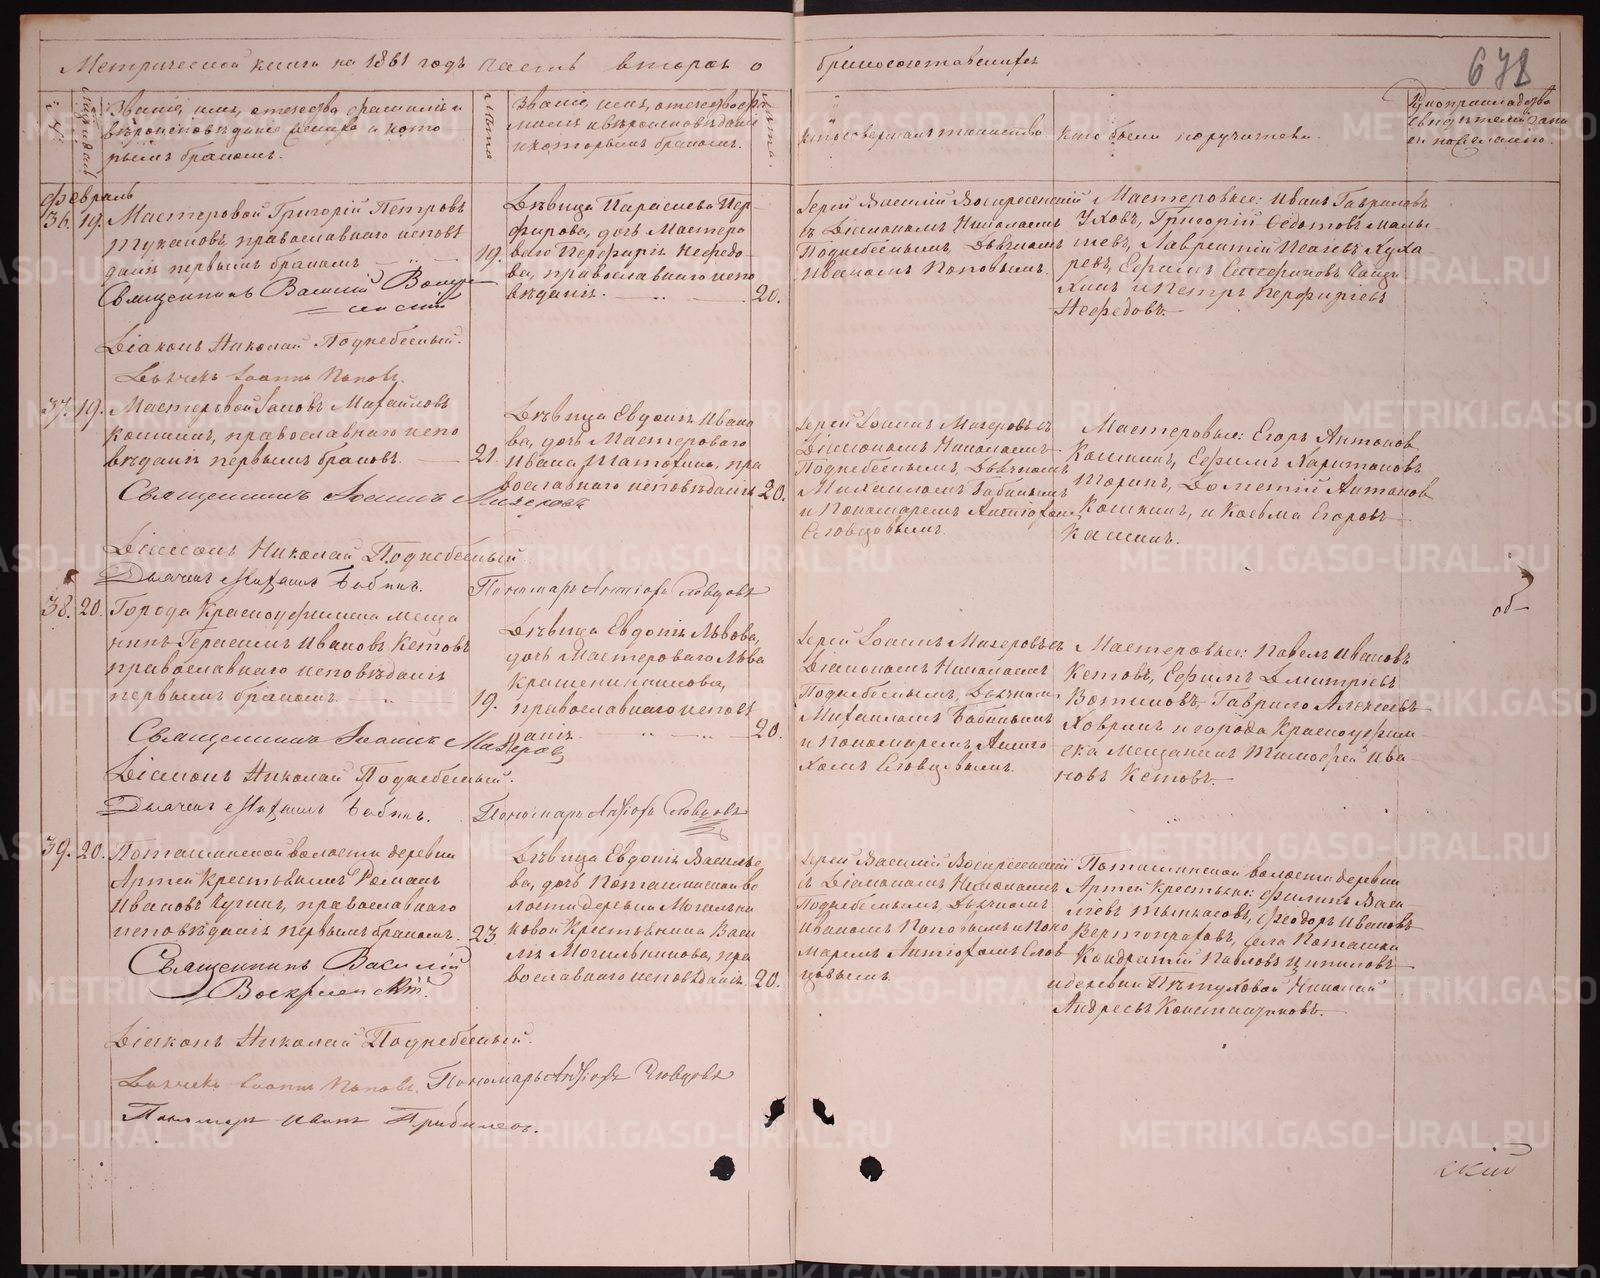 Метрической книги на 1861 годъ часть вторая о
бракосочетавшихся
678
Званіе, имя, отечество фамилія и
вѣроисповѣданіе жениха и кото
рымъ бракомъ.
Лѣта
Званіе, имя, отечество фа
милія и вѣроисповѣданіе
и которымъ бракомъ.
Лѣта
Кто совершалъ таинство
Кто были поручители.
Февраль
36. 19. Мастеровой Григорій Петровъ
православнаго исповѣ
данія первымъ бракомъ
19.
Священникъ Василій Воскре
сенскій
Діаконъ Николай Поднебесный.
Дьячекъ Іоаннъ Поповъ.
Дѣвица Параскева Пер
фирова, дочь Мастеро
ваго Перфирія Нефедо
ва, православнаго испо
вѣданія.
20.
Іерей Василій Воскресенскій
съ Діакономъ Николаемъ
Поднебеснымъ, Дьячкомъ
Иваномъ Поповымъ.
Мастеровые: Иванъ Гавриловъ
Уховъ, Григорій Ѳедотовъ Малы
шевъ, Лаврентій Исаевъ Куха
ревъ, Ефимъ
и Петръ Перфирьевъ
Нефедовъ.
37. 19. Мастеровой Іаковъ Михайловъ
Кошкинъ, православнаго испо
вѣданія первымъ бракомъ.
21.
Священникъ Іоаннъ Мизеровъ
Діаконъ Николай Поднебесный
Дьячекъ Михаилъ Бабинъ.
Пономарь Антіохъ Словцовъ
Дѣвица Евдокія Ивано
ва, дочь Мастероваго
Ивана Шатохина, пра
вославнаго исповѣданія
20.
Іерей Іоаннъ Мизеровъ съ
Діакономъ Николаемъ
Поднебеснымъ, Дьячкомъ
Михаиломъ Бабинымъ
и Пономаремъ Антіохомъ
Словцовымъ.
Мастеровые: Егоръ Антонов
Кошкинъ, Ефимъ Харитановъ
Торинъ, Дометій Антонов
Кошкинъ, и Косьма Егоровъ
Кашинъ.
38. 20. Города Красноуфимска меща
нинъ Герасимъ Ивановъ Кетовъ
православнаго исповѣданія
первымъ бракомъ.
19.
Священникъ Іоаннъ Мизеровъ
Діаконъ Николай Поднебесный.
Дьячекъ Михаилъ Бабинъ.
Пономарь Антіохъ Словцовъ
Дѣвица Евдокія Львова,
дочь Мастероваго Льва
Крашенинникова,
православнаго исповѣ
данія.
20.
Іерей Іоаннъ Мизеровъ съ
Діакономъ Николаемъ
Поднебеснымъ, Дьячкомъ
Михаиломъ Бабинымъ
и Пономаремъ Антіо
хомъ Словцовымъ.
Мастеровые: Павелъ Ивановъ
Кетовъ, Ефимъ Дмитріевъ
Вотиновъ, Гаврило Алексѣевъ
Ховринъ и города Красноуфим
ска мещанинъ Тимофей Ива
новъ Кетовъ.
39. 20. Поташинской волости деревни
Артей Крестьянинъ Романъ
Ивановъ православнаго
исповѣданія первымъ бракомъ.
23.
Священникъ Василій
Воскресенскій.
Діаконъ Николай Поднебесный.
Дьячекъ Іоаннъ Поповъ.
Пономарь Антіохъ Словцовъ
Пономарь Иванъ Прибылевъ.
Дѣвица Евдокія Василье
ва, дочь Поташинской во
лости деревни Могильни
ковой Крестьянина Васи
лія Могильникова, пра
вославнаго исповѣданія.
20.
Іерей Василій Воскресенскій
съ Діакономъ Николаемъ
Поднебеснымъ, Дьячкомъ
Иваномъ Поповымъ и Поно
маремъ Антіохомъ Слов
цовымъ.
Поташинской волости деревни
Артей Крестьяне: Филипъ Васи
льевъ Ѳеодоръ Ивановъ
Вертопраховъ, села Поташки
Кондратій Павловъ Цыпиловъ
и деревни Пѣтуховой Николай
Андреевъ Константиновъ.
об
скій
METRIKI.GASO-URAL.RU